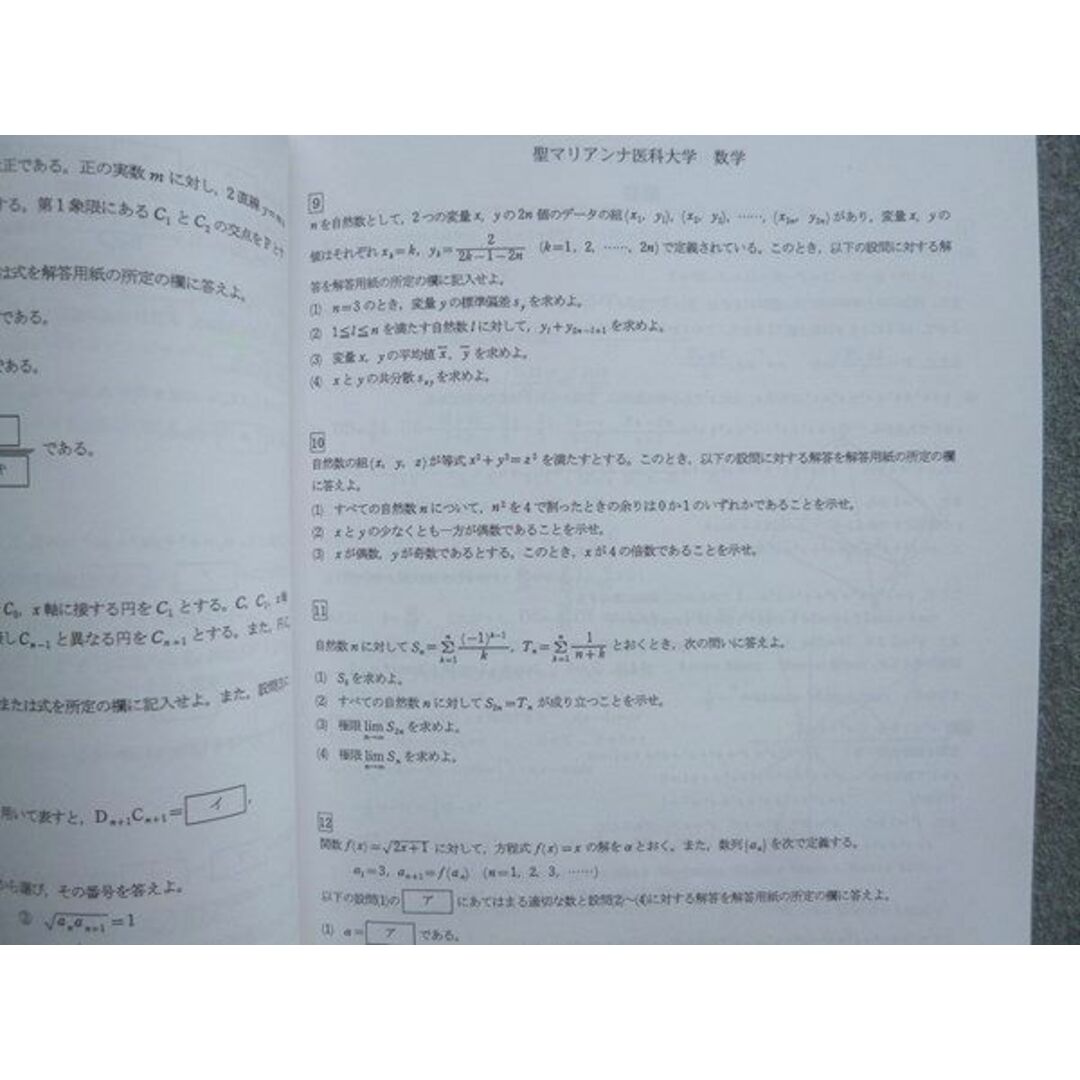 正である。正の実数 m に対し，2直線 y=m
する。第1象限にある C₁ と C₂ の交点を P とす
は式を解答用紙の所定の欄に答えよ。
である。
ある。
である。
ヤ
C₀，x 軸に接する円を C₁ とする。C，C₁，x
し Cₙ₋₁ と異なる円を Cₙ₊₁ とする。また，
または式を所定の欄に記入せよ。また，設問
用いて表すと，Dₙ₊₁Cₙ₊₁＝ イ ，
から選び，その番号を答えよ。
② √(aₙaₙ₊₁)＝1
聖マリアンナ医科大学　数学
9
n を自然数として，2つの変量 x，y の 2n 個のデータの組 (x₁，y₁)，(x₂，y₂)，……，(x₂ₙ，y₂ₙ) があり，変量 x，y の
値はそれぞれ xₖ＝k，yₖ＝2/(2k－1－2n)　(k＝1，2，……，2n) で定義されている。このとき，以下の設問に対する解
答を解答用紙の所定の欄に記入せよ。
(1) n＝3 のとき，変量 y の標準偏差 s_y を求めよ。
(2) 1≦l≦n を満たす自然数 l に対して，y_l＋y_{2n－l＋1} を求めよ。
(3) 変量 x，y の平均値 x̄，ȳ を求めよ。
(4) x と y の共分散 s_{xy} を求めよ。
10
自然数の組 (x，y，z) が等式 x²＋y²＝z² を満たすとする。このとき，以下の設問に対する解答を解答用紙の所定の欄
に答えよ。
(1) すべての自然数 n について，n² を4で割ったときの余りは0か1のいずれかであることを示せ。
(2) x と y の少なくとも一方が偶数であることを示せ。
(3) x が偶数，y が奇数であるとする。このとき，x が4の倍数であることを示せ。
11
自然数 n に対して Sₙ＝Σ_{k=1}^{n} (－1)^{k－1}/k，Tₙ＝Σ_{k=1}^{n} 1/(n＋k) とおくとき，次の問いに答えよ。
(2) すべての自然数 n に対して S₂ₙ＝Tₙ が成り立つことを示せ。
(3) 極限 lim_{n→∞} S₂ₙ を求めよ。
(4) 極限 lim_{n→∞} Sₙ を求めよ。
12
関数 f(x)＝√(2x＋1) に対して，方程式 f(x)＝x の解を α とおく。また，数列 {aₙ} を次で定義する。
a₁＝3，aₙ₊₁＝f(aₙ)　(n＝1，2，3，……)
以下の設問(1)の ア にあてはまる適切な数と設問(2)～(4)に対する解答を解答用紙の所定の欄に答えよ。
(1) α＝ ア である。